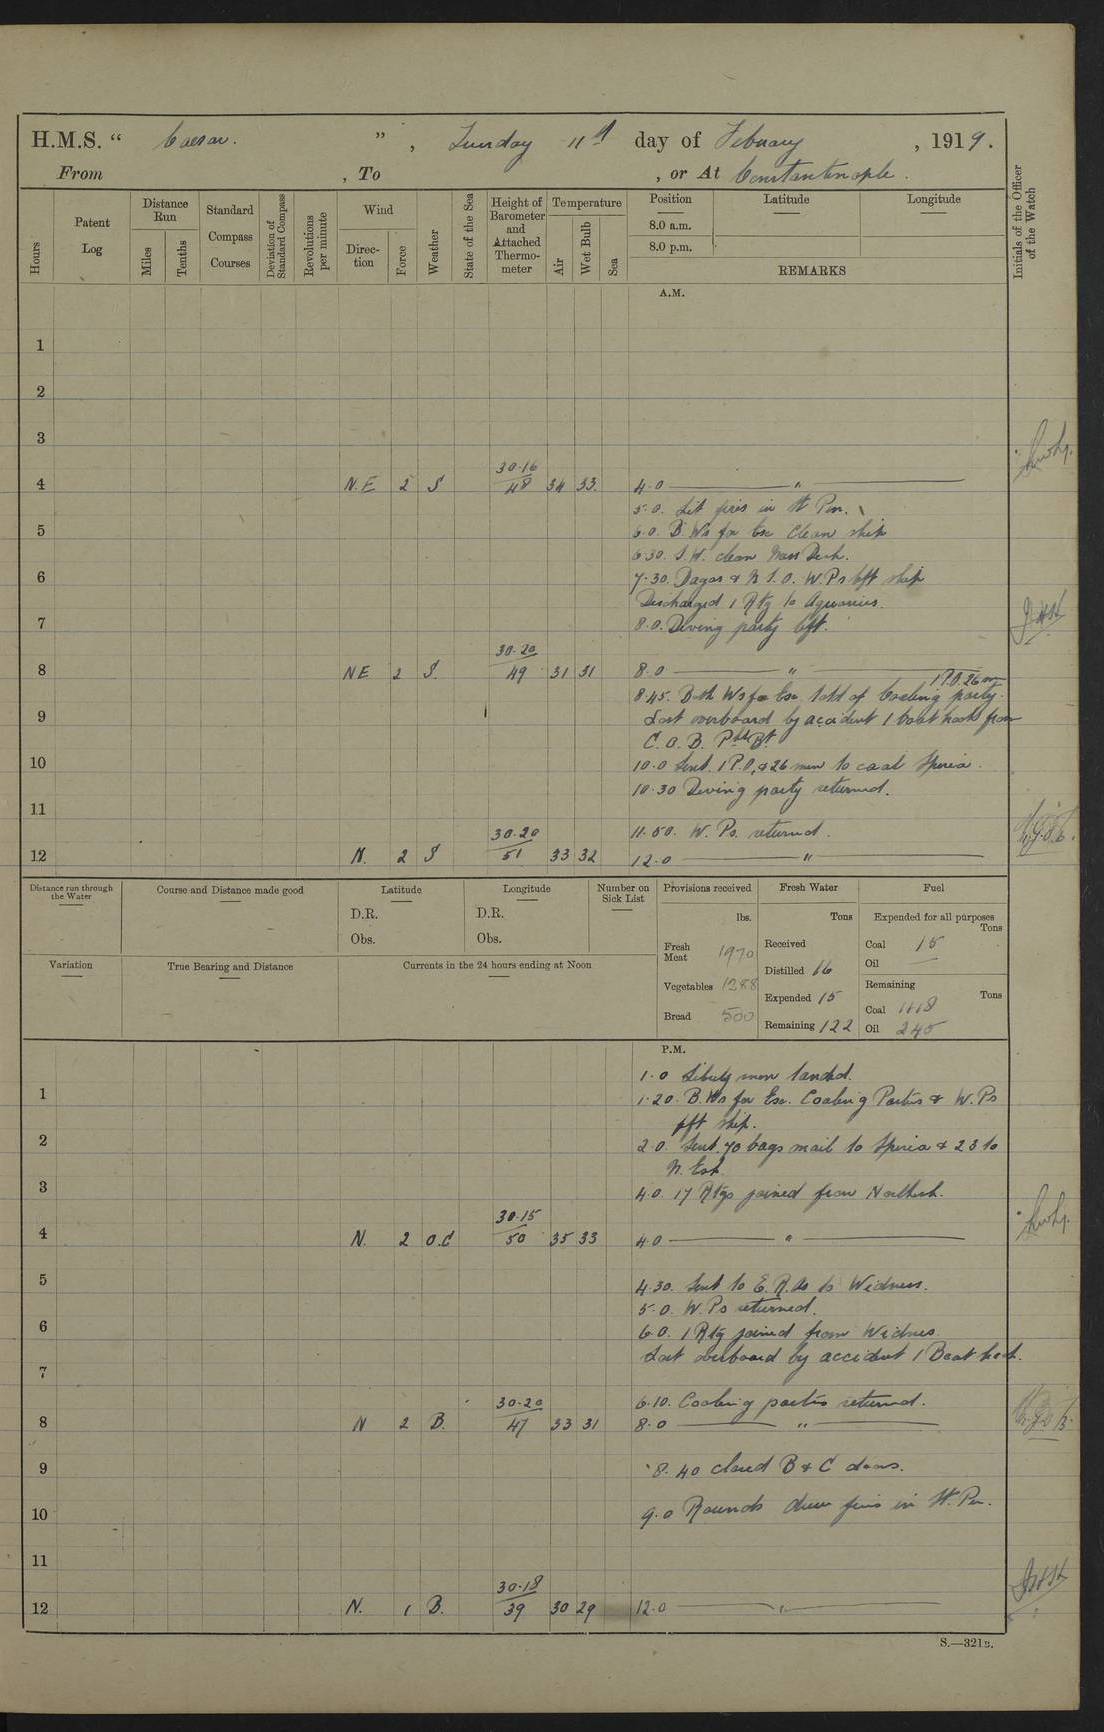 H.M.S. “ Caesar. ”, Tuesday 11th day of February, 1919.
From , To , or At Constantinople.
Hours
Patent Log
Distance Run
Miles
Tenths
Standard Compass Courses
Deviation of Standard Compass
Revolutions per minute
Wind
Direction
Force
Weather
State of the Sea
Height of Barometer and Attached Thermometer
Temperature
Air
Wet Bulb
Sea
Position
Latitude
Longitude
8.0 a.m.
8.0 p.m.
REMARKS
Initials of the Officer of the Watch
A.M.
1
2
3
30.16
4 N.E 2 S 48 34 33. 4.0 ——— " ———
5.0. Lit fires in St Pin.
5
6.0. B. Ws for Exc Clean ship
6.30. S.W. clean Mess Deck.
6
7.30. W.Ps left ship
Discharged 1 Rtg to Aquarius.
7
8.0. Diving party left.
30.20
8 NE 2 S. 49 31 31 8.0 ——— " ———
1 P.O. 26 m
8.45. Both Ws for Exc. told of Coaling party.
9
Lost overboard by accident 1 boat hook from
C.O.B.
10
10.0 Sent 1 P.O. & 26 men to coal Speria.
10.30 Diving party returned.
11
30.20
11.50. W. Ps. returned.
12 N. 2 S 51 33 32 12.0 ——— " ———
Distance run through the Water
Course and Distance made good
Latitude
D.R.
Obs.
Longitude
D.R.
Obs.
Number on Sick List
Provisions received
lbs.
Fresh Meat 1970
Vegetables 1288
Bread 500
Fresh Water
Tons
Received
Distilled 16
Expended 15
Remaining 122
Fuel
Expended for all purposes
Tons
Coal 15
Oil —
Remaining
Tons
Coal 1118
Oil 245
Variation
True Bearing and Distance
Currents in the 24 hours ending at Noon
P.M.
1.0 Liberty men landed.
1
1.20. B. Ws for Exc. Coaling Parties & W. Ps
left ship.
2
2.0. Sent 70 bags mail to Speria & 23 to
3
4.0. 17 Rtgs joined from
30.15
4 N. 2 O.C 50 35 33 4.0 ——— " ———
5
4.30. Sent to E.R.As to Widness.
5.0. W. Ps returned.
6
6.0. 1 Rtg joined from Widnes.
Lost overboard by accident 1 Boat hook.
7
30.20
6.10. Coaling parties returned.
8 N 2 B. 47 33 31 8.0 ——— " ———
9
8.40 closed B & C doors.
10
9.0 Rounds drew fires in St. Pin.
11
30.18
12 N. 1 B. 39 30 29 12.0 ——— " ———
S.—321B.